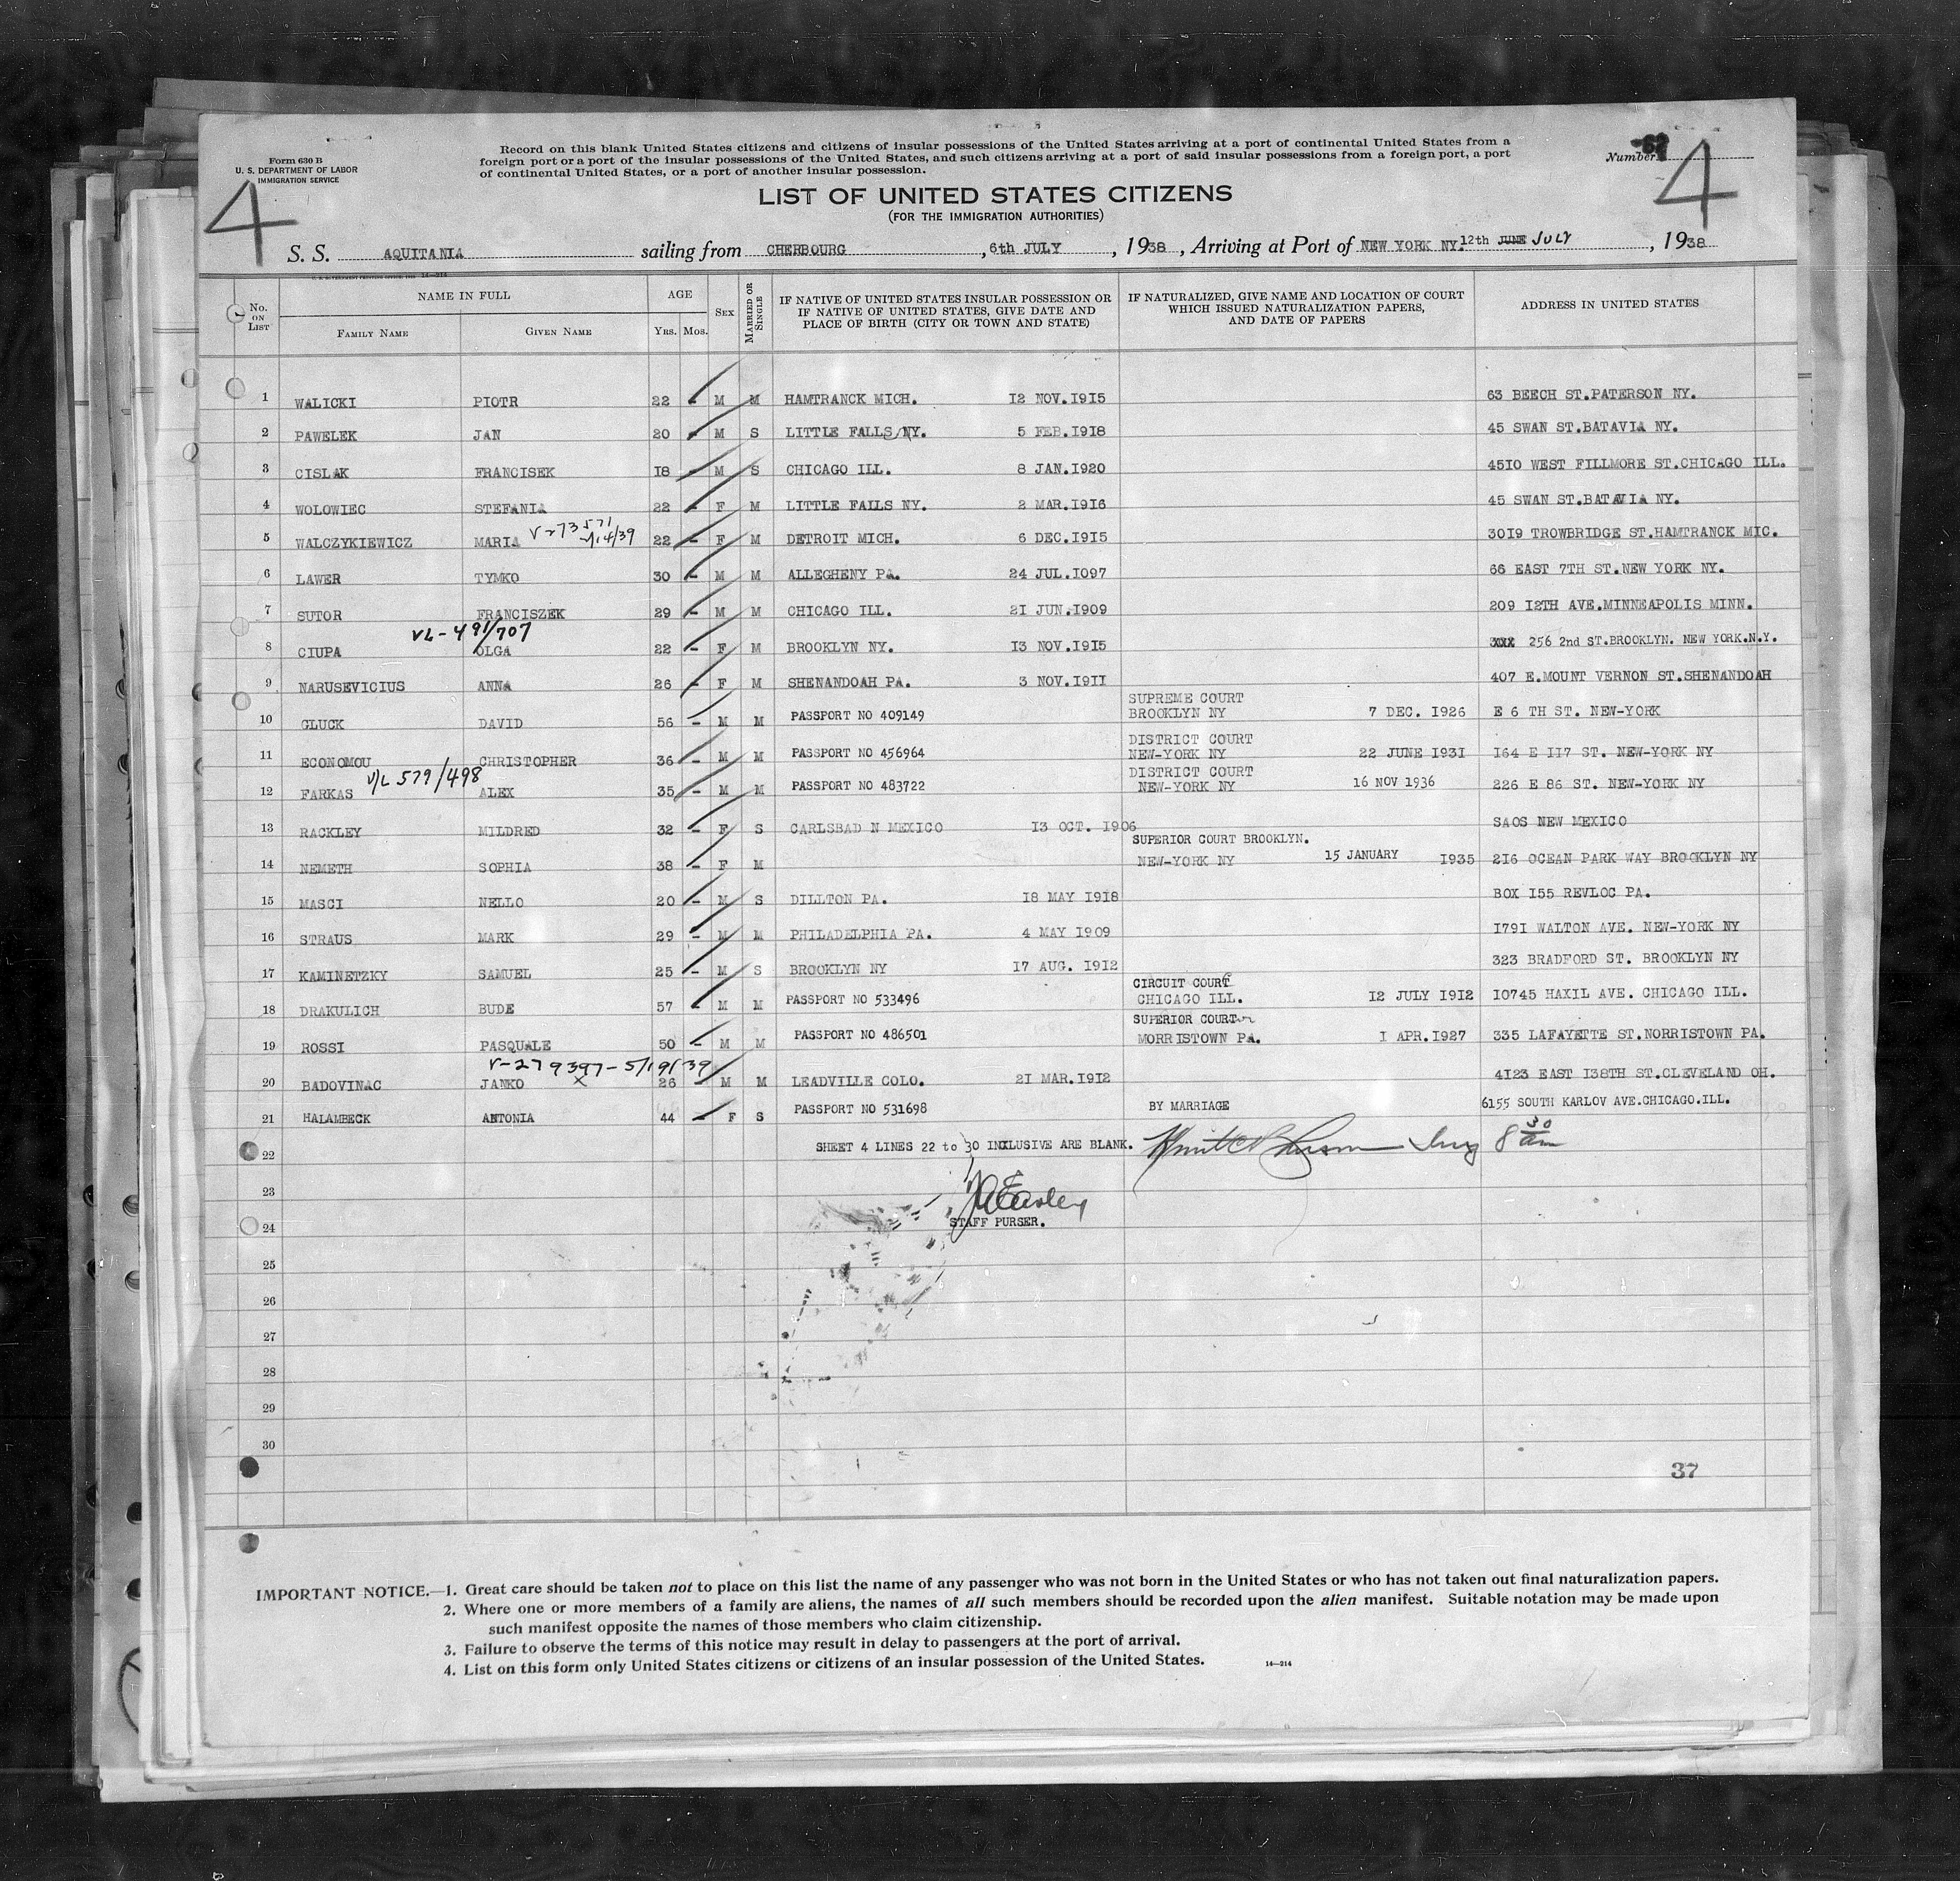 Form 630 B
U. S. DEPARTMENT OF LABOR
IMMIGRATION SERVICE
Record on this blank United States citizens and citizens of insular possessions of the United States arriving at a port of continental United States from a
foreign port or a port of the insular possessions of the United States, and such citizens arriving at a port of said insular possessions from a foreign port, a port
of continental United States, or a port of another insular possession.
Number 62
4
4
LIST OF UNITED STATES CITIZENS
(FOR THE IMMIGRATION AUTHORITIES)
S. S. AQUITANIA sailing from CHERBOURG, 6th JULY, 1938, Arriving at Port of NEW YORK NY. 12th JUNE JULY, 1938
No. ON LIST NAME IN FULL AGE SEX MARRIED OR SINGLE IF NATIVE OF UNITED STATES INSULAR POSSESSION OR IF NATIVE OF UNITED STATES, GIVE DATE AND PLACE OF BIRTH (CITY OR TOWN AND STATE) IF NATURALIZED, GIVE NAME AND LOCATION OF COURT WHICH ISSUED NATURALIZATION PAPERS, AND DATE OF PAPERS ADDRESS IN UNITED STATES
FAMILY NAME GIVEN NAME YRS. MOS.
1 WALICKI PIOTR 22 - M M HAMTRANCK MICH. 12 NOV.1915 63 BEECH ST.PATERSON NY.
2 PAWELEK JAN 20 - M S LITTLE FALLS NY. 5 FEB.1918 45 SWAN ST.BATAVIA NY.
3 CISLAK FRANCISEK 18 - M S CHICAGO ILL. 8 JAN.1920 4510 WEST FILLMORE ST.CHICAGO ILL.
4 WOLOWIEC STEFANIA 22 - F M LITTLE FALLS NY. 2 MAR.1916 45 SWAN ST.BATAVIA NY.
5 WALCZYKIEWICZ MARIA 22 - F M DETROIT MICH. 6 DEC.1915 3019 TROWBRIDGE ST.HAMTRANCK MIC.
6 LAWER TYMKO 30 - M M ALLEGHENY PA. 24 JUL.1097 66 EAST 7TH ST.NEW YORK NY.
7 SUTOR FRANCISZEK 29 - M M CHICAGO ILL. 21 JUN.1909 209 12TH AVE.MINNEAPOLIS MINN.
VL-491/707
8 CIUPA OLGA 22 - F M BROOKLYN NY. 13 NOV.1915 256 2nd ST.BROOKLYN. NEW YORK.N.Y.
9 NARUSEVICIUS ANNA 26 - F M SHENANDOAH PA. 3 NOV.1911 407 E.MOUNT VERNON ST.SHENANDOAH
SUPREME COURT
10 GLUCK DAVID 56 - M M PASSPORT NO 409149 BROOKLYN NY 7 DEC. 1926 E 6 TH ST. NEW-YORK
DISTRICT COURT
11 ECONOMOU CHRISTOPHER 36 - M M PASSPORT NO 456964 NEW-YORK NY 22 JUNE 1931 164 E 117 ST. NEW-YORK NY
V/L 579/498 DISTRICT COURT
12 FARKAS ALEX 35 - M M PASSPORT NO 483722 NEW-YORK NY 16 NOV 1936 226 E 86 ST. NEW-YORK NY
13 RACKLEY MILDRED 32 - F S CARLSBAD N MEXICO 13 OCT. 1906 SAOS NEW MEXICO
SUPERIOR COURT BROOKLYN.
14 NEMETH SOPHIA 38 - F M NEW-YORK NY 15 JANUARY 1935 216 OCEAN PARK WAY BROOKLYN NY
15 MASCI NELLO 20 - M S DILLTON PA. 18 MAY 1918 BOX 155 REVLOC PA.
16 STRAUS MARK 29 - M M PHILADELPHIA PA. 4 MAY 1909 1791 WALTON AVE. NEW-YORK NY
17 KAMINETZKY SAMUEL 25 - M S BROOKLYN NY 17 AUG. 1912 323 BRADFORD ST. BROOKLYN NY
CIRCUIT COURT
18 DRAKULICH BUDE 57 - M M PASSPORT NO 533496 CHICAGO ILL. 12 JULY 1912 10745 HAXIL AVE. CHICAGO ILL.
SUPERIOR COURT
19 ROSSI PASQUALE 50 - M M PASSPORT NO 486501 MORRISTOWN PA. 1 APR.1927 335 LAFAYETTE ST.NORRISTOWN PA.
V-279397-5/19/39
20 BADOVINAC JANKO X 26 - M M LEADVILLE COLO. 21 MAR.1912 4123 EAST 138TH ST.CLEVELAND OH.
21 HALAMBECK ANTONIA 44 - F S PASSPORT NO 531698 BY MARRIAGE 6155 SOUTH KARLOV AVE.CHICAGO.ILL.
22 SHEET 4 LINES 22 to 30 INCLUSIVE ARE BLANK. 8 30 am
23
24 STAFF PURSER.
25
26
27
28
29
30
37
IMPORTANT NOTICE.—1. Great care should be taken not to place on this list the name of any passenger who was not born in the United States or who has not taken out final naturalization papers.
2. Where one or more members of a family are aliens, the names of all such members should be recorded upon the alien manifest. Suitable notation may be made upon
such manifest opposite the names of those members who claim citizenship.
3. Failure to observe the terms of this notice may result in delay to passengers at the port of arrival.
4. List on this form only United States citizens or citizens of an insular possession of the United States. 14—214